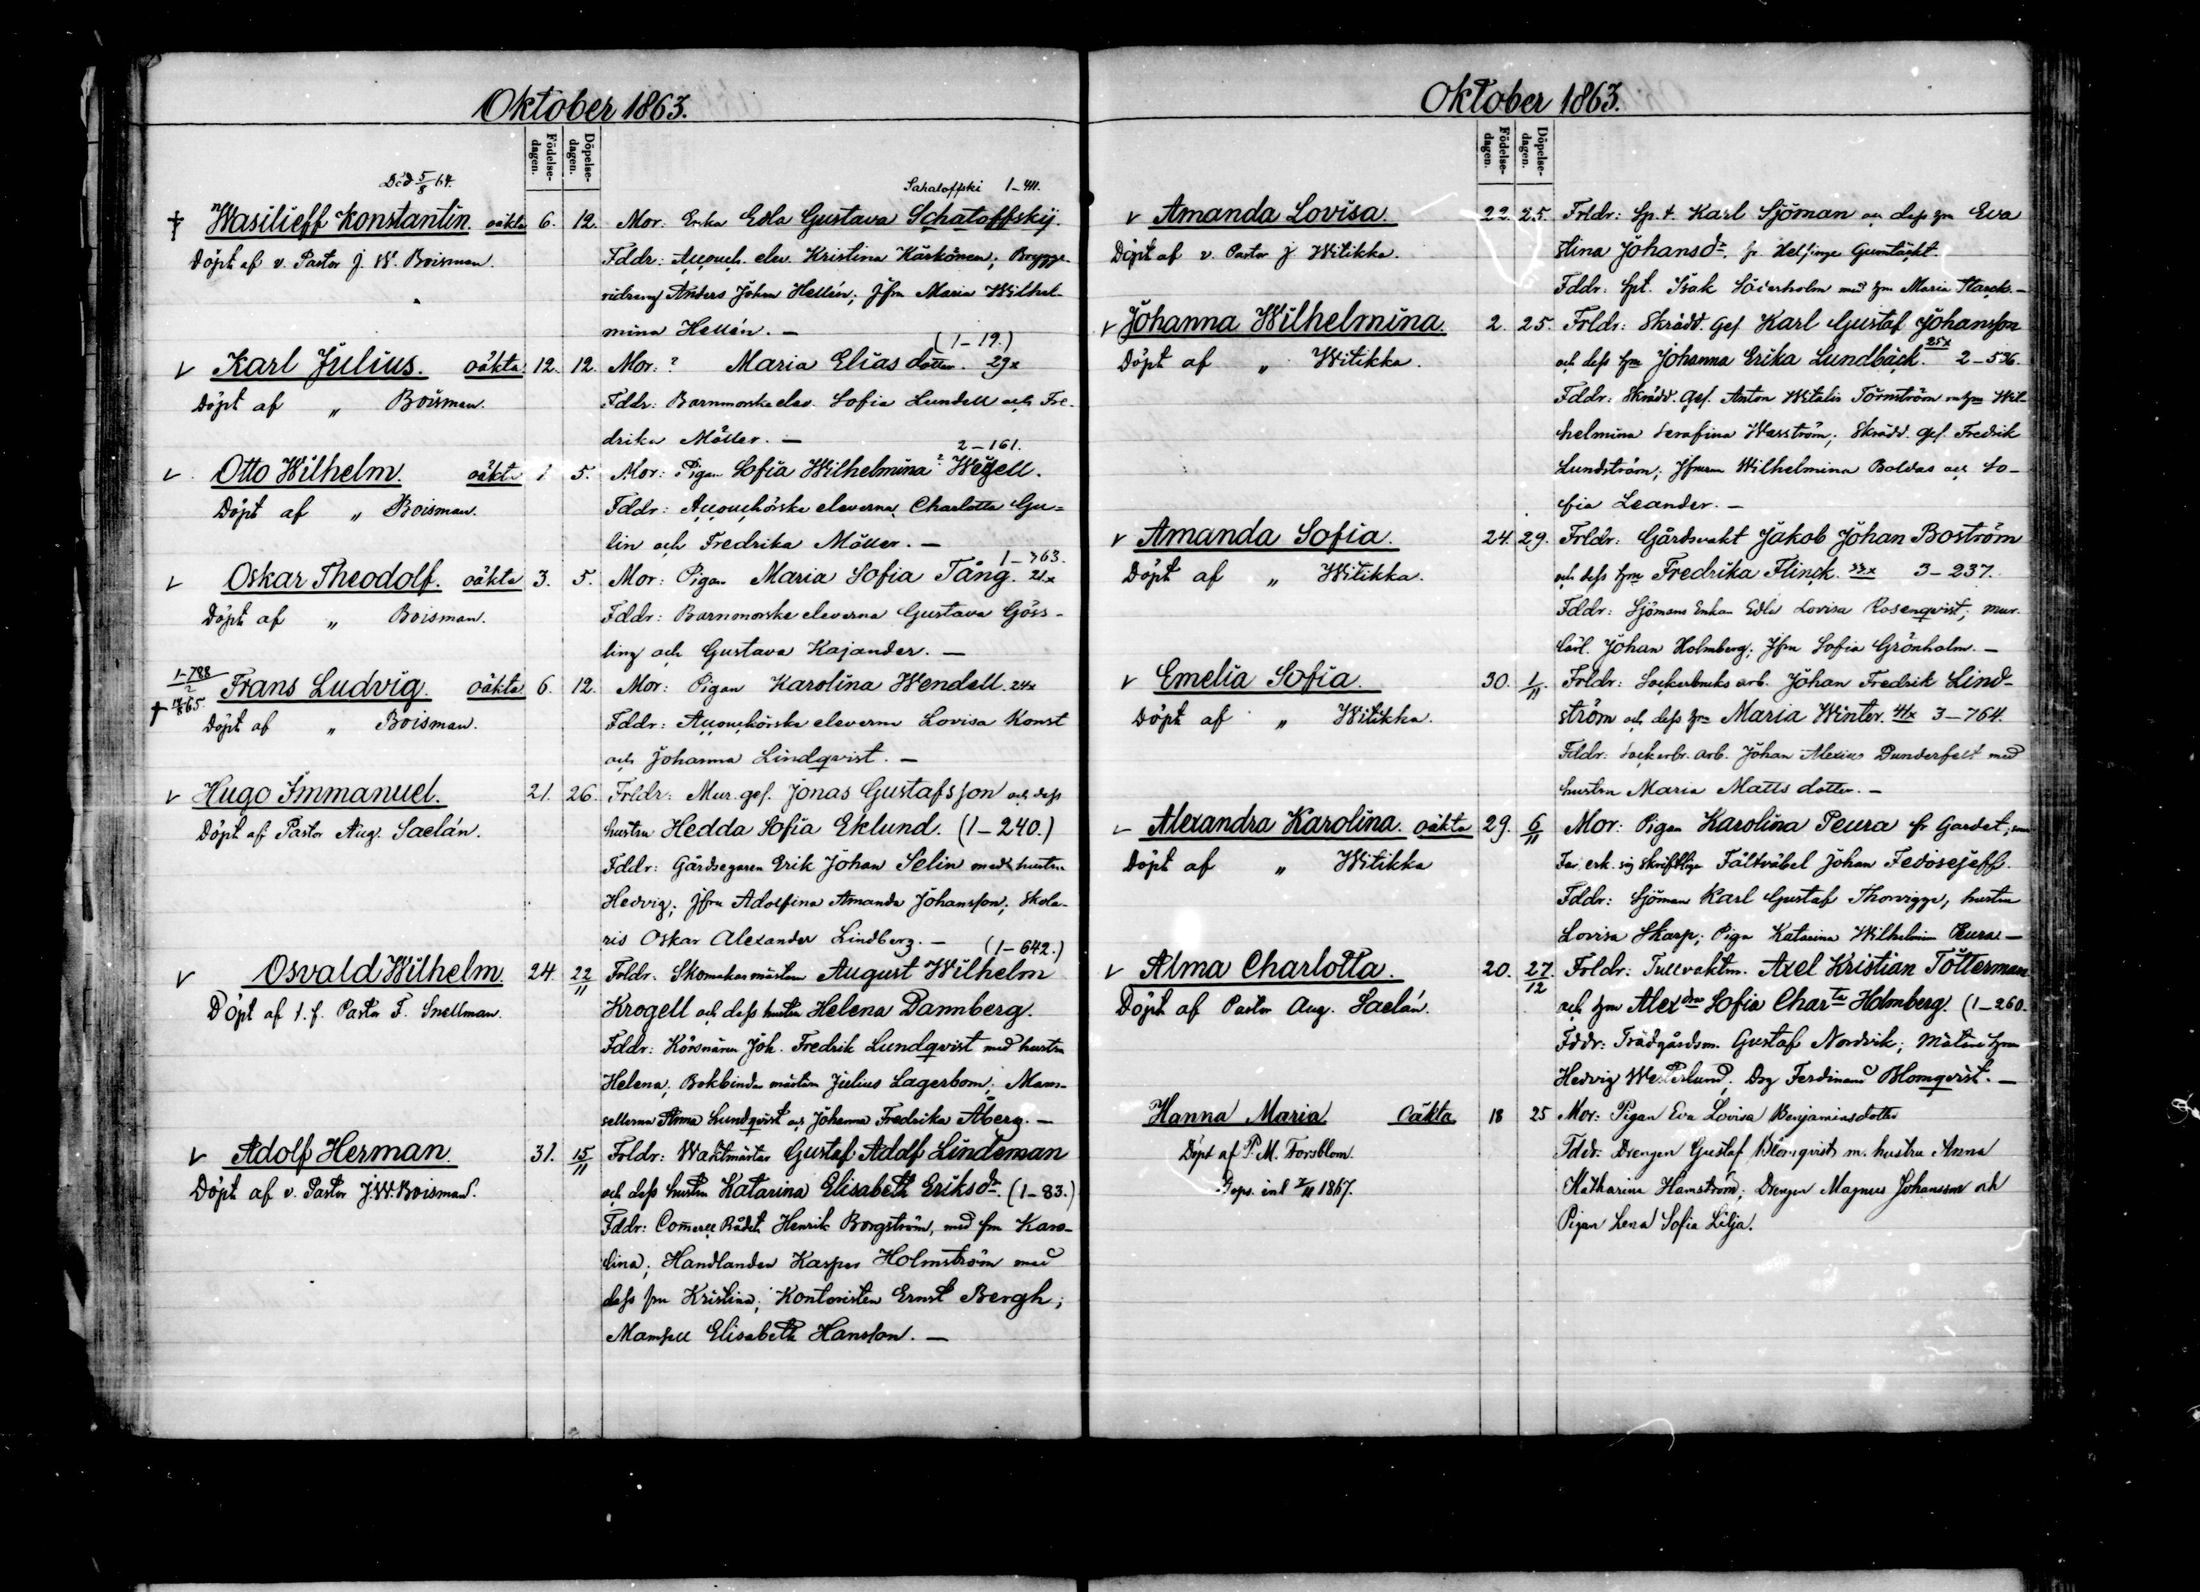 Oktober 1863.
Födelse-dagen. Döpelse-dagen.
Död 5/8 64. Saratoffski 1-411.
Wasilieff Konstantin. oäkta 6. 12. Mor: Enka Edla Gustava Schatoffskij.
Döpt af v. Pastor J. W. Boisman. Fddr: Accouch. elev. Kristina Kärkönen; Brygge-
Anders Johan Hellén; Jfru Maria Wilhel-
mina Hellén. — (1-19.)
Karl Julius. oäkta 12. 12. Mor: ? Maria Elias dotter. 29x
Döpt af „ Boisman. Fddr: Barnmorske elev. Sofia Lundell och Fre-
drika Möller. — 2-161.
Otto Wilhelm. oäkta 1 5. Mor: Pigan Sofia Wilhelmina Wegell.
Döpt af „ Boisman. Fddr: Accouchörske eleverna Charlotta Gu-
lin och Fredrika Möller. — 1-763.
Oskar Theodolf. oäkta 3. 5. Mor: Pigan Maria Sofia Tång. 21x
Döpt af „ Boisman. Fddr: Barnmorske eleverna Gustava Göss-
ling och Gustava Kajander. —
1-788
Frans Ludvig. oäkta 6. 12. Mor: Pigan Karolina Wendell. 24x
Döpt af „ Boisman. Fddr: Accouchörske eleverna Lovisa Konst
och Johanna Lindqvist. —
Hugo Immanuel. 21. 26. Frldr: Mur. ges. Jonas Gustafsson och dess
Döpt af Pastor Aug. Saelán. hustru Hedda Sofia Eklund. (1-240.)
Fddr: Gårdsegaren Erik Johan Selin med hustru
Hedvig; Jfru Adolfina Amanda Johansson; Skola-
ris Oskar Alexander Lindberg. — (1-642.)
Osvald Wilhelm. 24. 22/11 Frldr. Skomakarmästaren August Wilhelm
Döpt af t.f. Pastor F. Snellman. Krogell och dess hustru Helena Dannberg.
Fddr: Körsnären Joh. Fredrik Lundqvist med hustru
Helena; Bokbindar mästaren Julius Lagerbom; Mam-
sellerna Anna Lundqvist och Johanna Fredrika Åberg. —
Adolf Herman. 31. 15/11 Frldr: Waktmästar Gustaf Adolf Lindeman
Döpt af v. Pastor J.W. Boisman. och dess hustru Katarina Elisabeth Eriksdr. (1-83.)
Fddr: Comerce Rådet Henrik Borgström, med fru Karo-
lina; Handlanden Kasper Holmström med
dess fru Kristina; Kontoristen Ernst Bergh;
Mamsell Elisabeth Hansson. —
Oktober 1863.
Födelse-dagen. Döpelse-dagen.
Amanda Lovisa. 22. 25. Frldr: Sp. t. Karl Sjöman och dess hru Eva
Döpt af v. Pastor J. Witikka. Stina Johansdr. fr. Helsinge Gumtäkt.
Fddr: Spt. Isak Söderholm med hru Maria Starck. —
Johanna Wilhelmina. 2. 25. Frldr: Skrädd. Ges. Karl Gustaf Johansson
Döpt af „ Witikka. och dess hru Johanna Erika Lundbäck. 25x 2-536.
Fddr: Skrädd. Ges. Anton Witalis Törnström m hru Wil-
helmina Serafina Wasström; Skrädd. ges. Fredrik
Lundström; Jfruerna Wilhelmina Boldas och So-
fia Leander. —
Amanda Sofia. 24. 29. Frldr: Gårdsvakt Jakob Johan Boström
Döpt af „ Witikka. och dess hru Fredrika Flinck. 3-237.
Fddr: Sjömans Enkan Edla Lovisa Rosenqvist; mur.
lärl. Johan Holmberg; Jfru Sofia Grönholm. —
Emelia Sofia. 30. 1/11. Frldr: Sockerbruks arb. Johan Fredrik Lind-
Döpt af „ Witikka. ström och dess hru Maria Winter. 41x 3-764.
Fddr: Sockerbr. arb. Johan Alexius Dunderfelt med
hustru Maria Matts dotter. —
Alexandra Karolina. oäkta 29. 6/11 Mor: Pigan Karolina Peura fr. Gardet; som
Döpt af „ Witikka Far erk. sig skriftlign Fältväbel Johan Fedosejeff.
Fddr: Sjöman Karl Gustaf Thorvigge, hustru
Lovisa Skarp; Piga Katarina Wilhelmina Peura —
Alma Charlotta. 20. 27/12 Frldr: Tullvaktm. Axel Kristian Tötterman
Döpt af Pastor Aug. Saelán. och hru Alexdra Sofia Charta Holmberg. (1-260.
Fddr: Trädgårdsm. Gustaf Nordvik; hru
Hedvig Westerlund; Dzg Ferdinand Blomqvist. —
Hanna Maria Oäkta 18 25 Mor: Pigan Eva Lovisa Benjaminsdotter
Döpt af P. M. Forsblom. Fddr: Drengen Gustaf Blomqvist m. hustru Anna
inl 1867. Katharina Hamström; Drengen Magnus Johansson och
Pigan Lena Sofia Lilja.